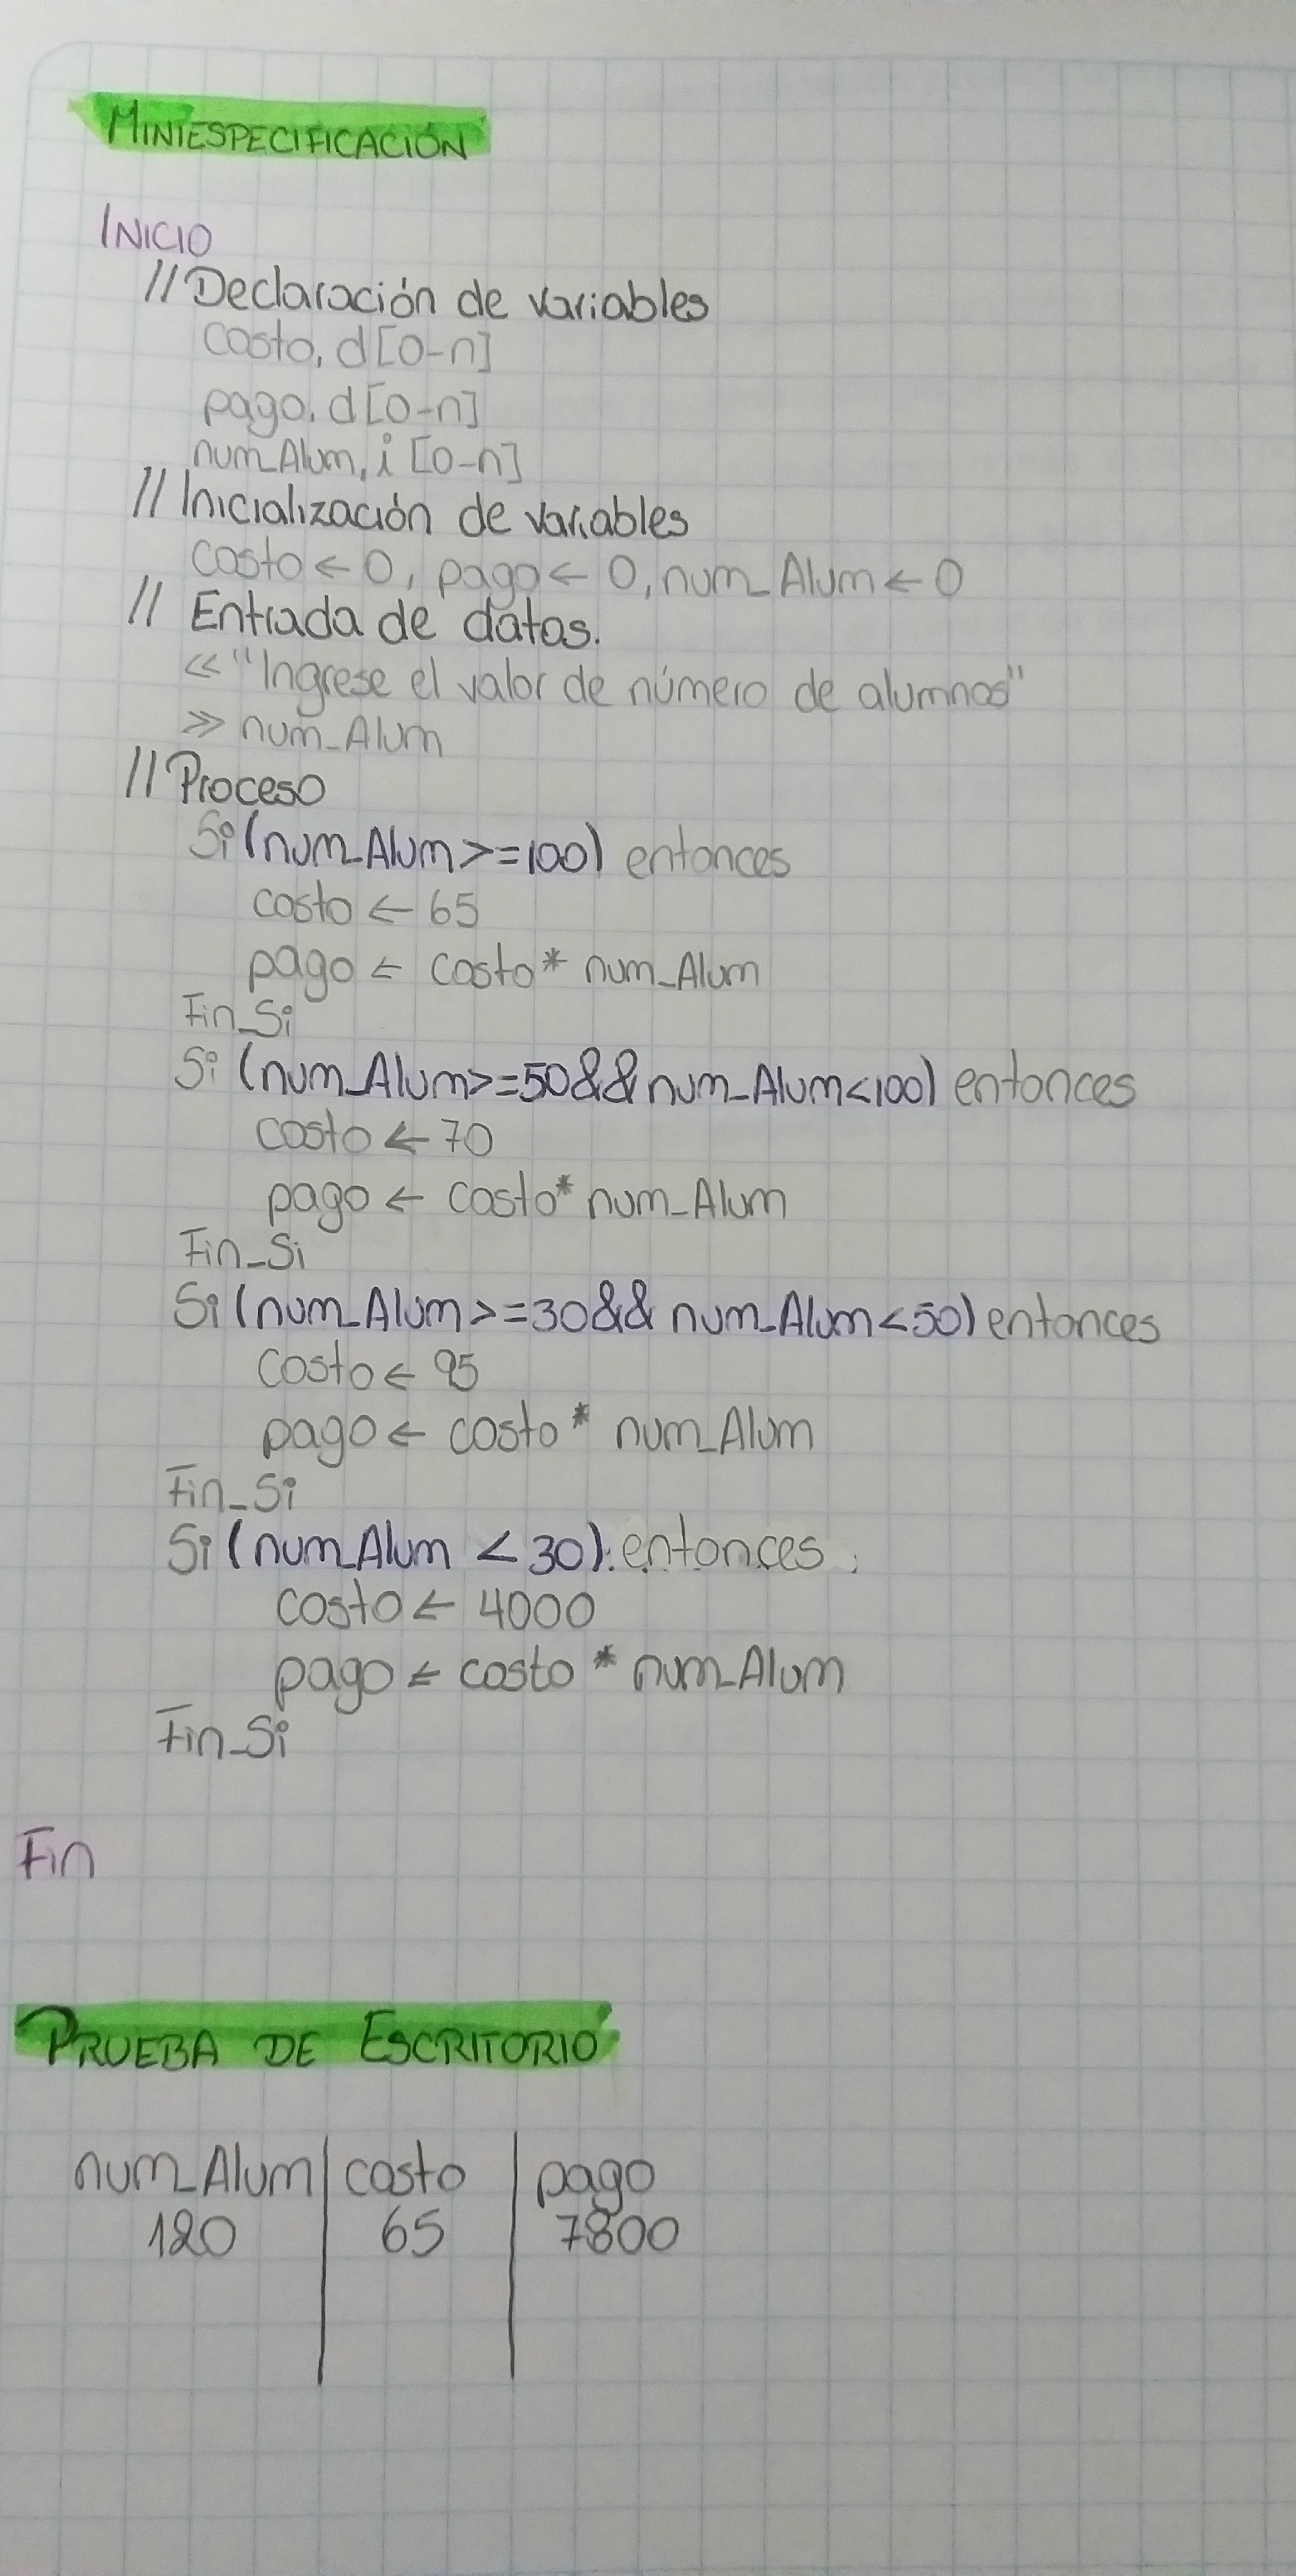 MINIESPECIFICACIÓN
INICIO
// Declaración de variables
costo, d[0-n]
pago, d[0-n]
num_Alum, i [0-n]
// Inicialización de variables
costo ← 0, pago ← 0, num_Alum ← 0
// Entrada de datos.
<< "Ingrese el valor de número de alumnos"
>> num_Alum
// Proceso
Si (num_Alum >= 100) entonces
costo ← 65
pago ← costo * num_Alum
Fin_Si
Si (num_Alum >= 50 && num_Alum < 100) entonces
costo ← 70
pago ← costo * num_Alum
Fin_Si
Si (num_Alum >= 30 && num_Alum < 50) entonces
costo ← 95
pago ← costo * num_Alum
Fin_Si
Si (num_Alum < 30) entonces
costo ← 4000
pago ← costo * num_Alum
Fin_Si
Fin
PRUEBA DE ESCRITORIO
num_Alum | costo | pago
120 | 65 | 7800